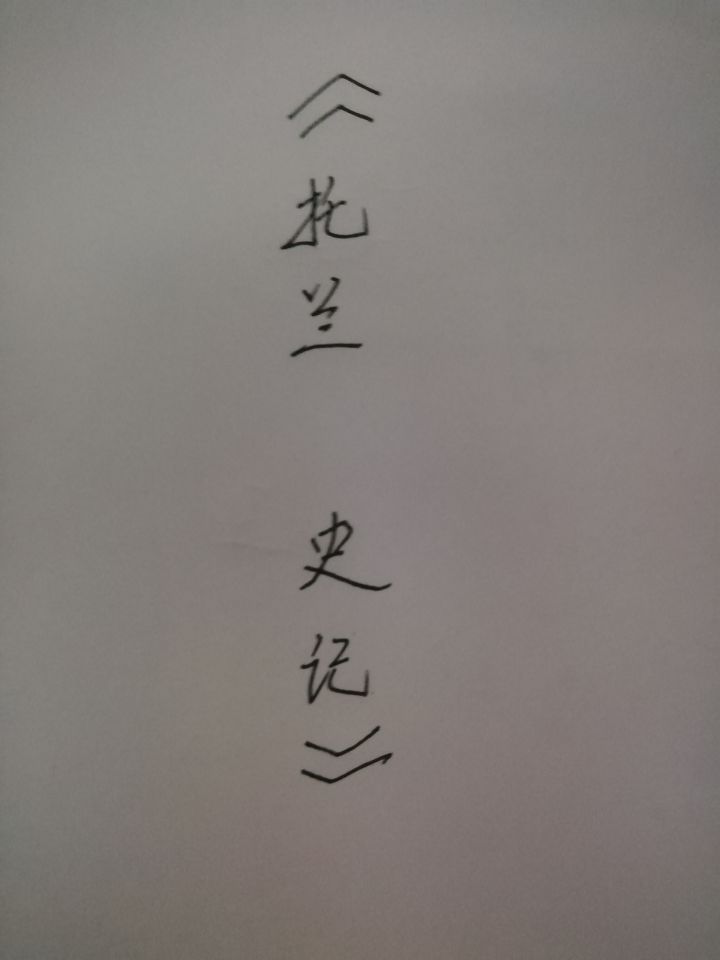 《托兰 史记》